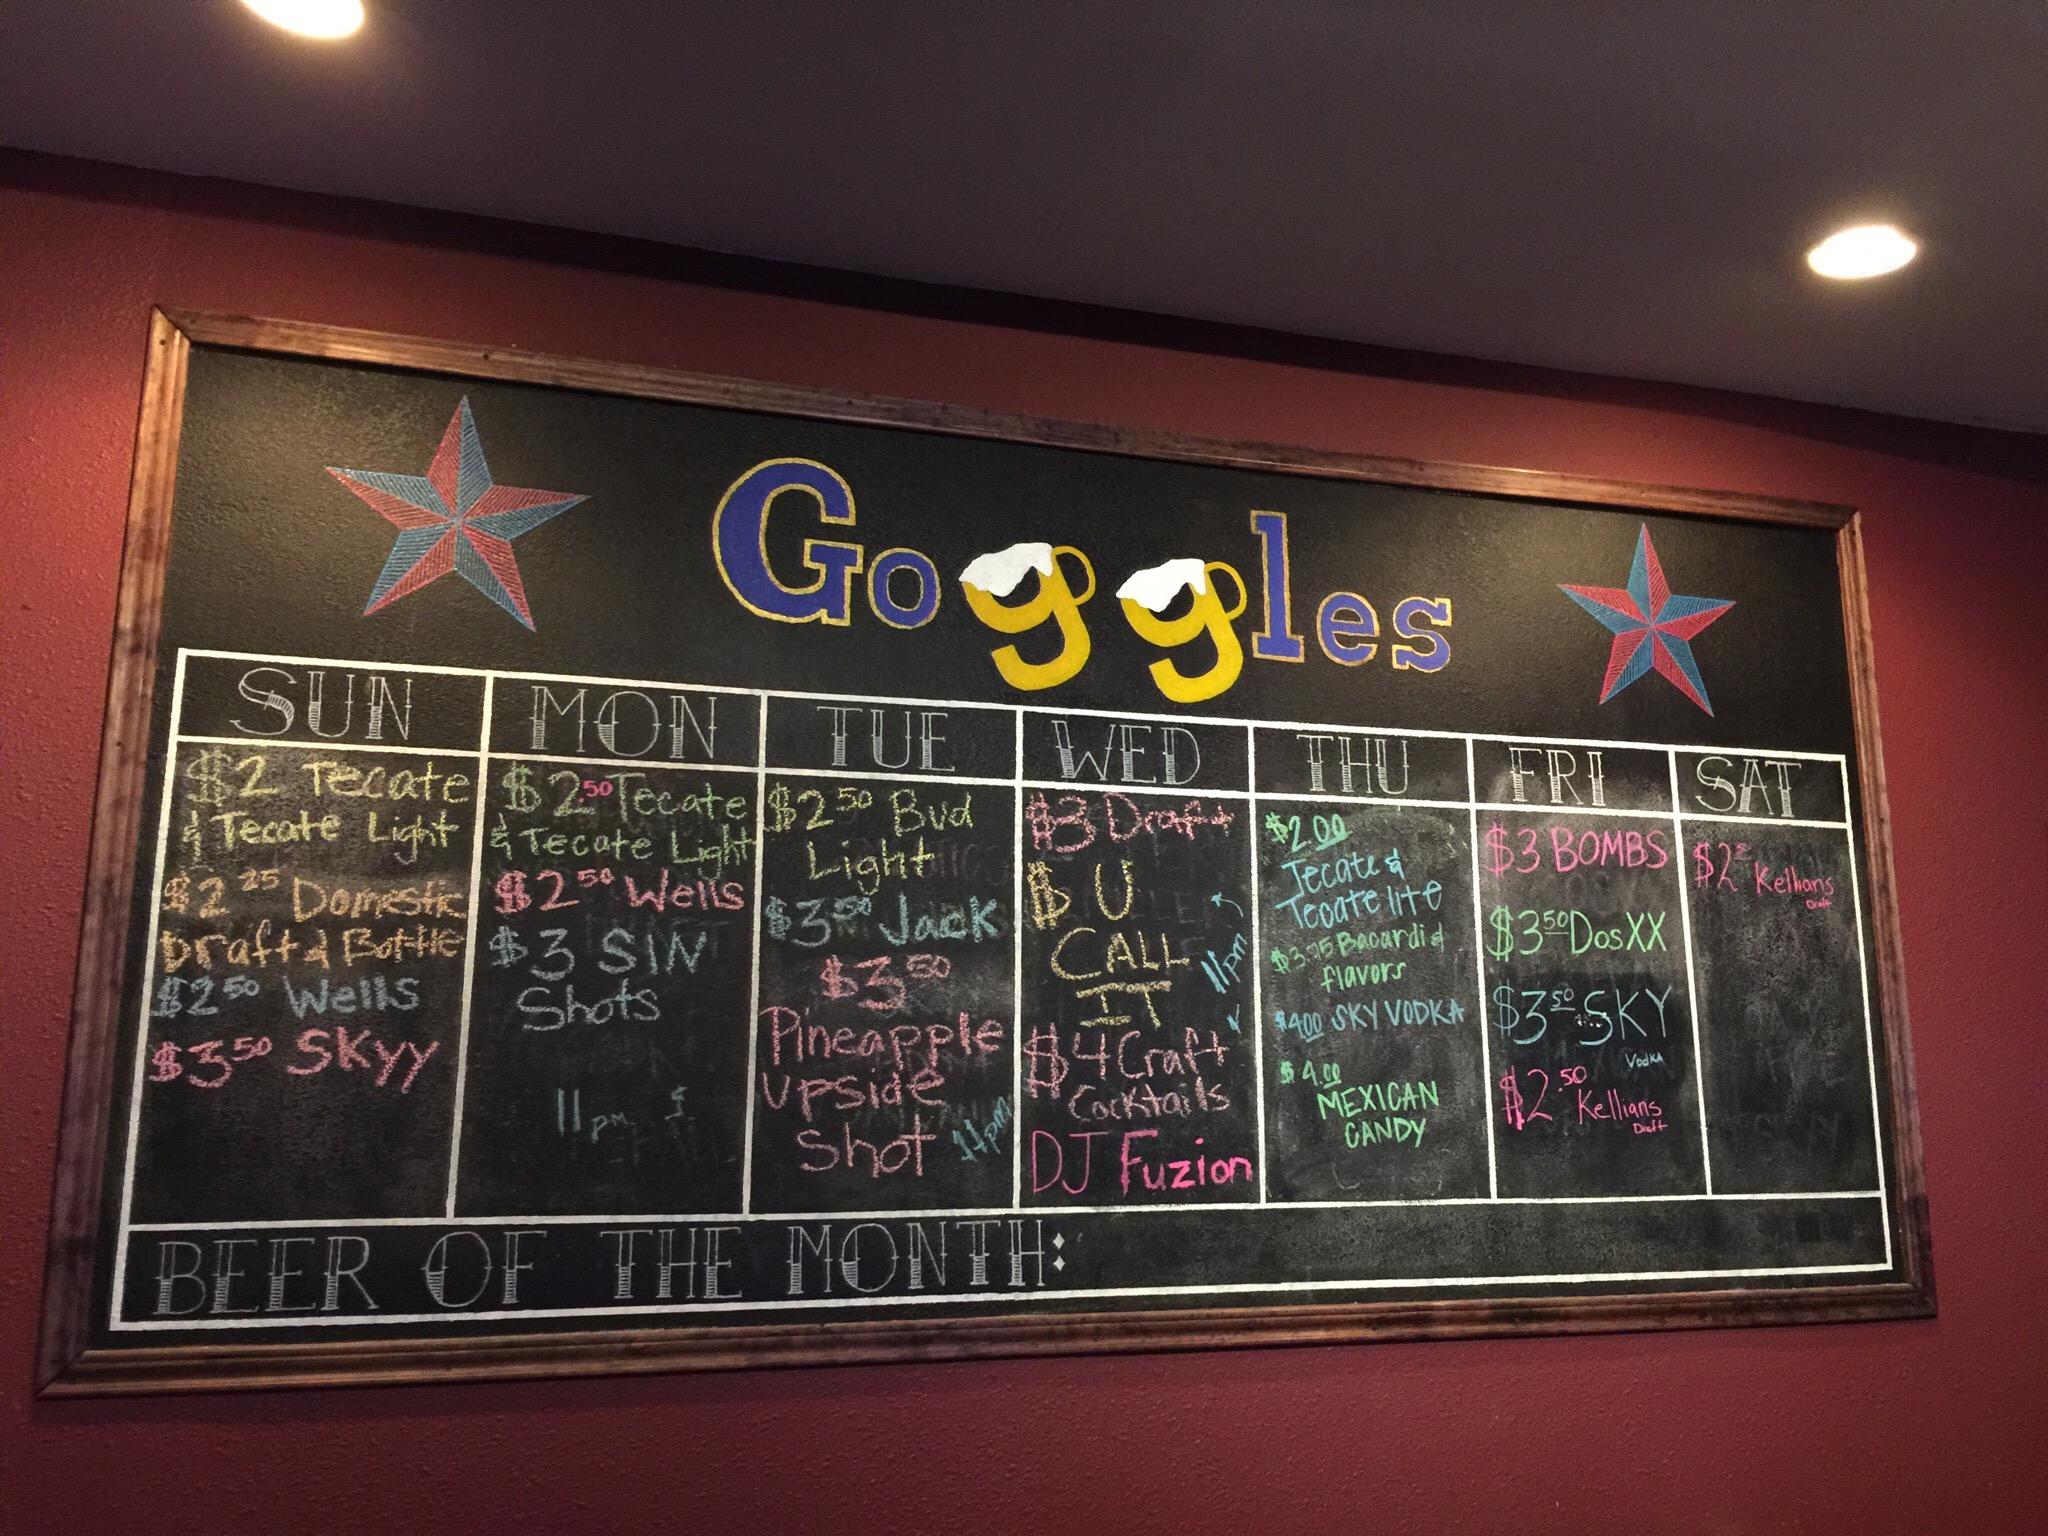 Goggles
SUN
$2 Tecate
& Tecate Light
$2 25 Domestic
Draft & Bottle
$2 50 Wells
$3 50 SKyy
MON
$2.50 Tecate
& Tecate Light
$2 50 Wells
$3 SIN
Shots
11pm
TUE
$2 50 Bud
Light
$3 50 Jack
$3 50
Pineapple
upside
Shot
11pm
WED
$3 Draft
$ U
CALL
IT
11pm
$4 Craft
Cocktails
DJ Fuzion
THU
$2.00
Tecate &
Tecate lite
$3.75 Bacardi &
flavors
$4.00 SKY VODKA
$4.00
MEXICAN
CANDY
FRI
$3 BOMBS
$3 50 Dos XX
$3 50 SKY
Vodka
$2.50 Kellians
Draft
SAT
$2 Kellians
Draft
BEER OF THE MONTH: